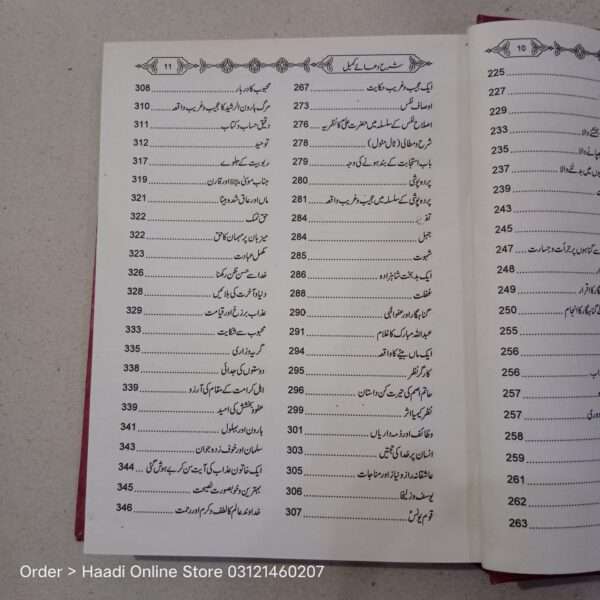 11
شرح دعائے کمیل
ایک عجیب و غریب حکایت 267
اوصاف نفس 273
اصلاح نفس کے سلسلہ میں حضرت علیؑ کا نظریہ 276
شرح و مطالب 278
باب استجابت کے بند ہونے کی وجہ 279
پردہ پوشی 280
پردہ پوشی کے سلسلہ میں عجیب و غریب واقعہ 281
284
جہل 284
شہوت 285
ایک بدبخت شاہزادہ 286
غفلت 288
گناہگار اور عفو الٰہی 290
عبداللہ مبارک کا غلام 291
ایک ماں بیٹے کا واقعہ 294
کارگر نظر 295
حاتم اصم کی حیرت کن داستان 296
نظر کیمیا اثر 299
وظائف اور ذمہ داریاں 301
انسان پر خدا کی حجتیں 303
عاشقانہ راز و نیاز اور مناجات 305
یوسف و زلیخا 306
قوم یونسؑ 307
محبوب کا دربار 308
مرگ ہارون الرشید کا عجیب و غریب واقعہ 310
دقیق حساب و کتاب 311
توحید 312
ربوبیت کے جلوے 317
جناب موسیٰ اور قارون 319
ماں اور عاق شدہ بیٹا 321
حق نمک 322
میزبان پر مہمان کا حق 322
مکمل عبادت 323
خدا سے حسن ظن رکھنا 326
دنیا و آخرت کی بلائیں 328
عذاب برزخ اور قیامت 329
محبوب سے شکایت 333
گریہ و زاری 335
دوستوں کی جدائی 338
اہل کرامت کے مقام کی آرزو 339
عفو و بخشش کی امید 339
ہارون اور بہلول 341
سلمان اور خوف زدہ جوان 343
ایک خاتون عذاب کی آیت سن کر بے ہوش ہو گئی 344
بہترین و خوبصورت نصیحت 345
خداوند عالم کا لطف و کرم اور رحمت 346
10
225
227
229
233
235
237
243
245
سے گناہوں پر جرأت و جسارت 247
248
کا اقرار 249
گنہگار کا انجام 250
255
256
256
257
258
259
261
262
263
Order > Haadi Online Store 03121460207